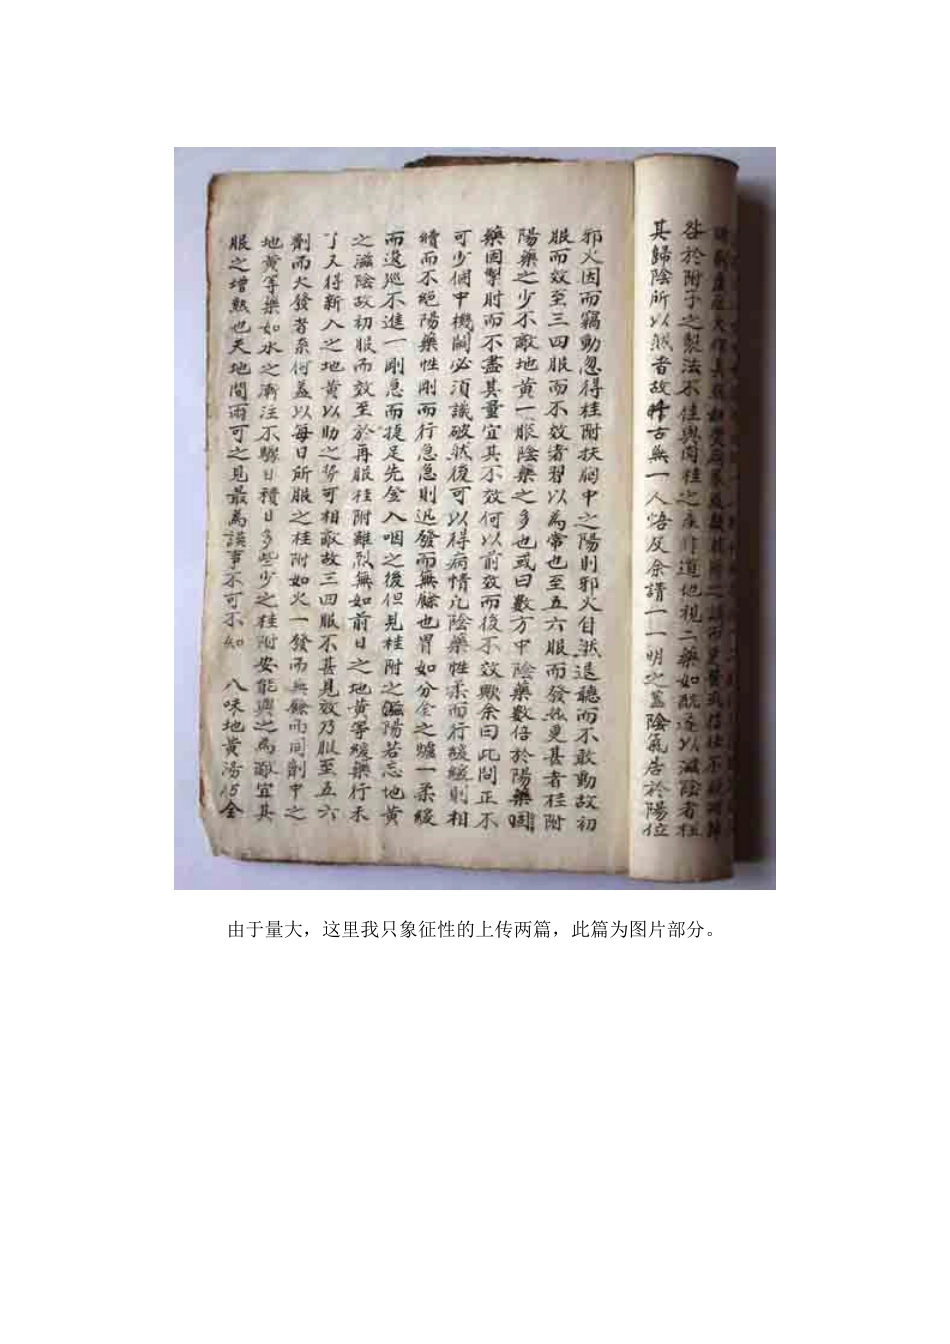 咎於附子之製法不佳與肉桂之產非道地視二藥如酖遂以滋陰者杜
其歸陰所以然者故昨古無一人悟及余請一一明之蓋陰氣居於陽位
邪火因而竊動忽得桂附扶胸中之陽則邪火自然退聽而不敢動故初
服而效至三四服而不效者習以為常也至五六服而發熱更甚者桂附
陽藥之少不敵地黃一派陰藥之多也或曰數方中陰藥數倍於陽藥固
藥因掣肘而不盡其量宜其不效何以前效而後不效歟余曰此問正不
可少個中機關必須識破然後可以得病情凡陰藥性柔而行緩緩則相
續而不絕陽藥性剛而行急急則迅發而無餘也胃如分金之爐一柔緩
而逡巡不進一剛急而捷足先登入咽之後但見桂附之扶陽若忘地黃
之滋陰故初服而效至於再服桂附雖烈無如前日之地黃等緩藥行未
了又得新入之地黃以助之勢可相敵故三四服不甚見效乃服至五六
劑而大發者奈何蓋以每日所服之桂附如火一發而無餘而同劑中之
地黃等藥如水之漸注不驟日積日多些少之桂附安能與之為敵宜其
服之增熱也天地間兩可之見最為誤事不可不知 八味地黃湯lb全
由于量大，这里我只象征性的上传两篇，此篇为图片部分。